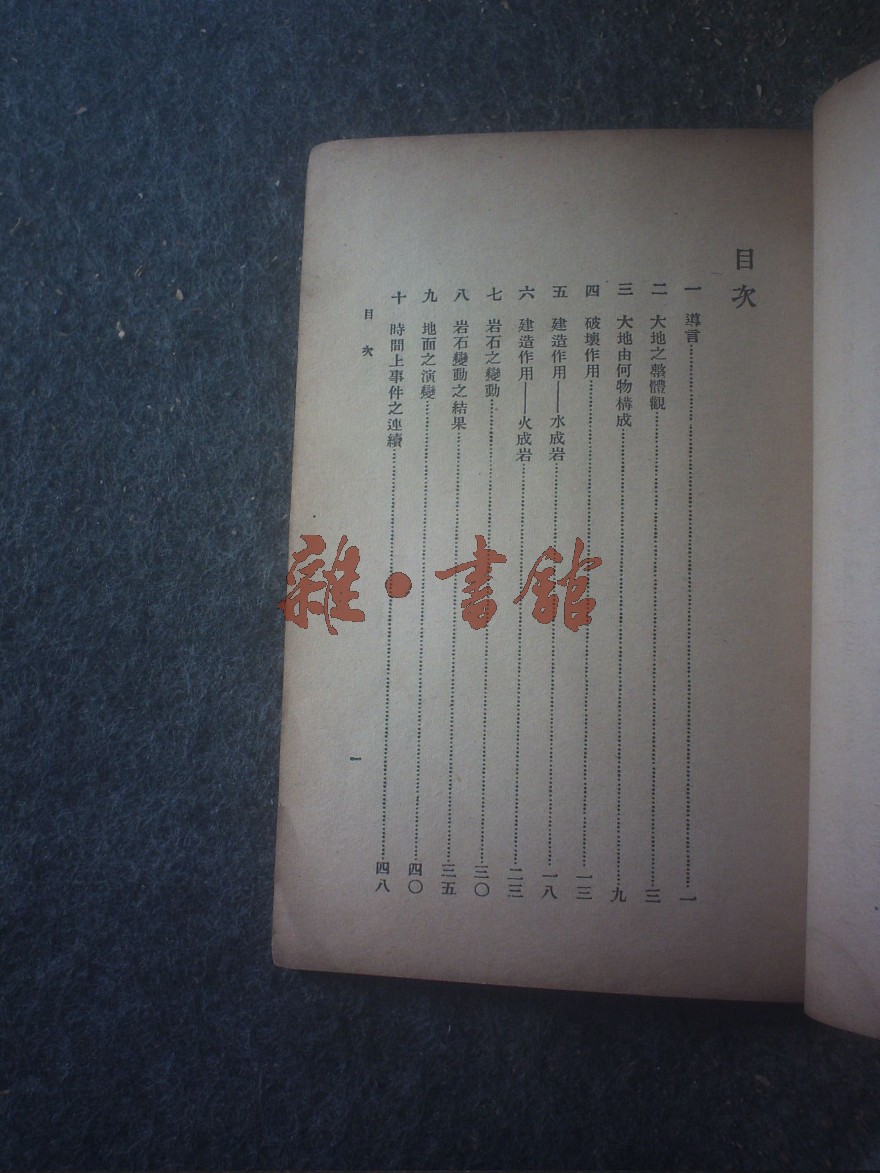 目次
一 導言 一
二 大地之整體觀 三
三 大地由何物構成 九
四 破壞作用 一三
五 建造作用——水成岩 一八
六 建造作用——火成岩 二三
七 岩石之變動 三〇
八 岩石變動之結果 三五
九 地面之演變 四〇
十 時間上事件之連續 四八
目次
一
雜·書舘